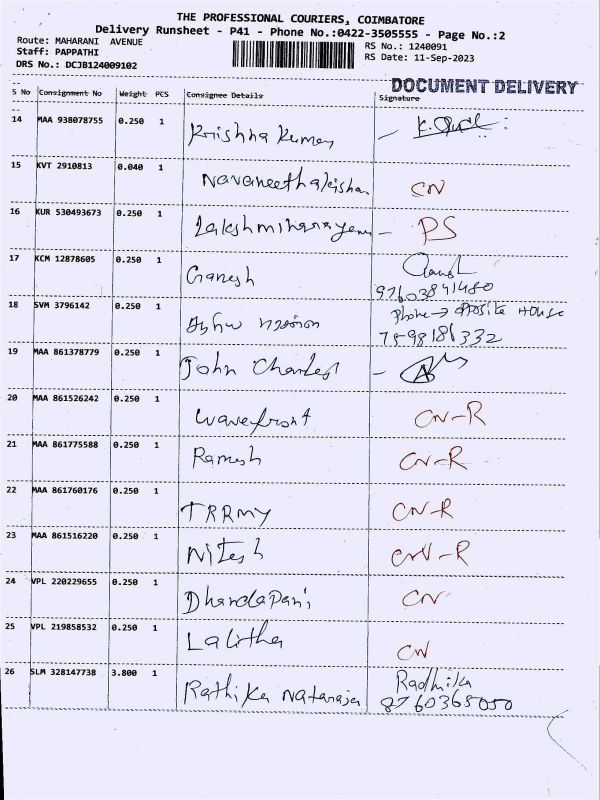 THE PROFESSIONAL COURIERS, COIMBATORE
Delivery Runsheet - P41 - Phone No.:0422-3505555 - Page No.:2
Route: MAHARANI AVENUE
RS No.: 1240091
Staff: PAPPATHI
RS Date: 11-Sep-2023
DRS No.: DCJB124009102
DOCUMENT DELIVERY
S No Consignment No Weight PCS Consignee Details Signature
14 MAA 938078755 0.250 1 Krishna Kumar
15 KVT 2910813 0.040 1 Navaneethakrishan CN
16 KUR 530493673 0.250 1 Lakshminarayana - PS
17 KCM 12878605 0.250 1 Ganesh
18 SVM 3796142 0.250 1 Phone → oposite House
7598186332
19 MAA 861378779 0.250 1 John Charles
20 MAA 861526242 0.250 1 Wavefront CN-R
21 MAA 861775588 0.250 1 Ramesh CN-R
22 MAA 861760176 0.250 1 TRRMY CN-R
23 MAA 861516220 0.250 1 Nitesh CN-R
24 VPL 220229655 0.250 1 Dhandapani CN
25 VPL 219858532 0.250 1 Lalitha CN
26 SLM 328147738 3.800 1 Rathika Natarajan Radhika
8760365050